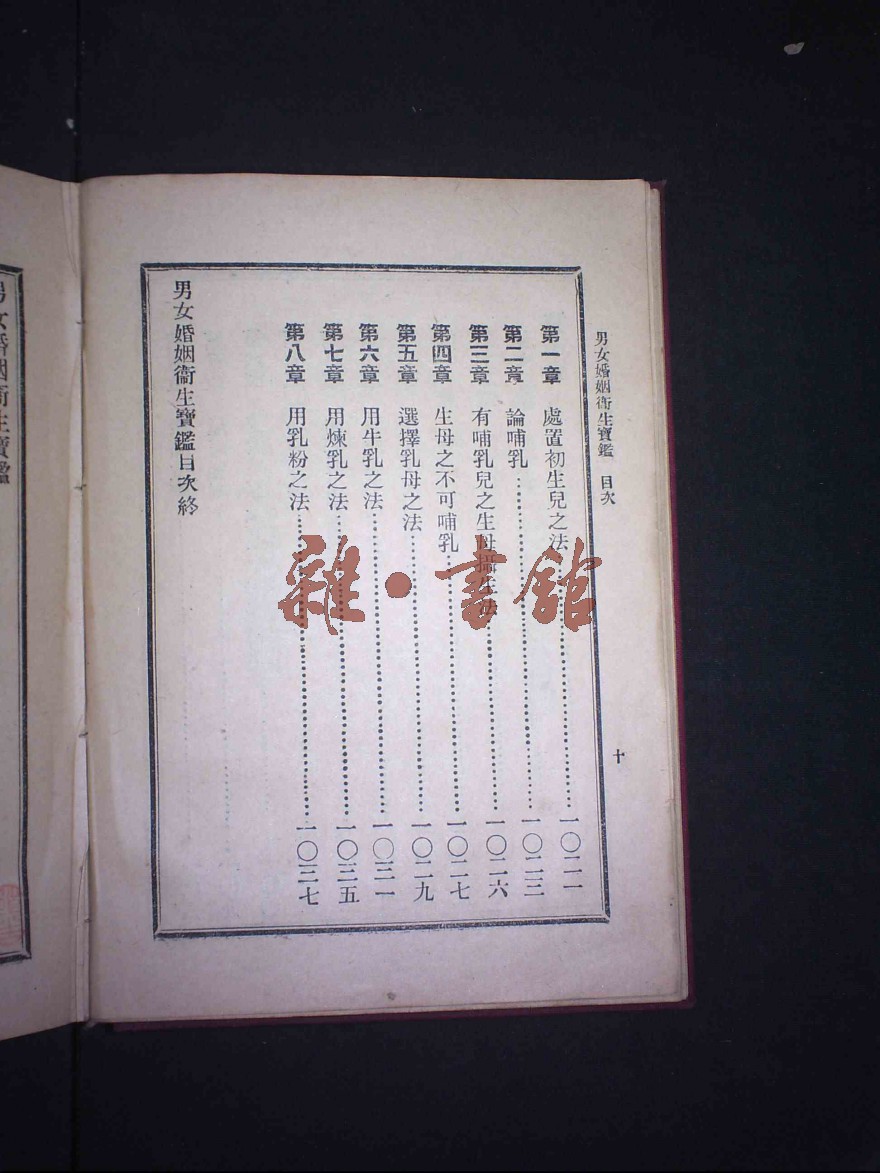 男女婚姻衞生寶鑑 目次
十
第一章 處置初生兒之法……一〇二一
第二章 論哺乳……一〇二三
第三章 有哺乳兒之生母攝生法……一〇二六
第四章 生母之不可哺乳……一〇二七
第五章 選擇乳母之法……一〇二九
第六章 用牛乳之法……一〇三一
第七章 用煉乳之法……一〇三五
第八章 用乳粉之法……一〇三七
男女婚姻衞生寶鑑目次終
男女婚姻衞生寶鑑
雜·書館